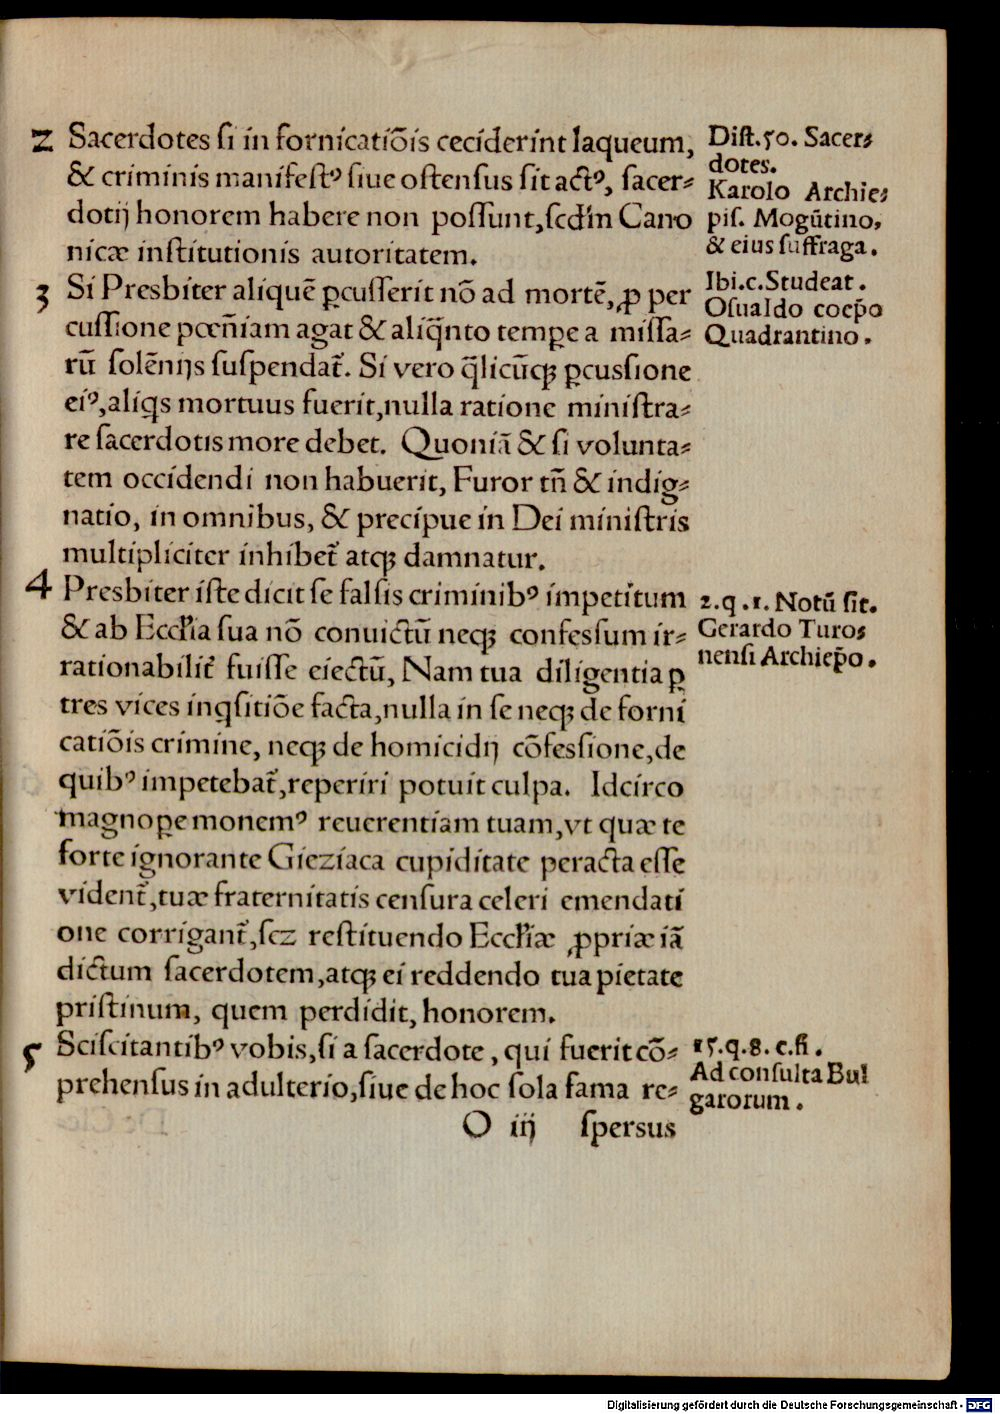 2 Sacerdotes ſi in fornicatiõis ceciderint laqueum,
& criminis manifeſtꝰ ſiue oſtenſus ſit actꝰ, ſacer⸗
dotij honorem habere non poſſunt, ſed in Cano
nicæ inſtitutionis autoritatem.
Diſt. 50. Sacer⸗
dotes.
Karolo Archie⸗
piſ. Mogũtino,
& eius ſuffraga.
3 Si Presbiter aliquẽ ꝑcuſſerit nõ ad mortẽ, ꝓ per
cuſſione pœñiam agat & aliq̃nto tempe a miſſa⸗
rũ ſolẽnijs ſuſpendat᷑. Si vero q̃licũqꝫ ꝑcuſsione
eiꝰ, aliqs mortuus fuerit, nulla ratione miniſtra⸗
re ſacerdotis more debet. Quoniã & ſi volunta⸗
tem occidendi non habuerit, Furor tñ & indig⸗
natio, in omnibus, & precipue in Dei miniſtris
multipliciter inhibet᷑ atqꝫ damnatur.
Ibi. c. Studeat.
Oſualdo coep̃o
Quadrantino.
4 Presbiter iſte dicit ſe falſis criminibꝰ impetitum
& ab Eccl̃ia ſua nõ conuictũ neqꝫ confeſsum ir⸗
rationabilit᷑ fuiſſe eiectũ, Nam tua diligentia ꝑ
tres vices inqſitiõe facta, nulla in ſe neqꝫ de forni
catiõis crimine, neqꝫ de homicidij cõfeſsione, de
quibꝰ impetebat᷑, reperiri potuit culpa. Idcirco
magnoꝑe monemꝰ reuerentiam tuam, vt quæ te
forte ignorante Gieziaca cupiditate peracta eſſe
vident᷑, tuæ fraternitatis cenſura celeri emendati
one corrigant᷑, ſcz reſtituendo Eccl̃iæ ꝓpriæ iã
dictum ſacerdotem, atqꝫ ei reddendo tua pietate
priſtinum, quem perdidit, honorem.
2. q. 1. Notũ ſit.
Gerardo Turo⸗
nenſi Archiep̃o.
5 Sciſcitantibꝰ vobis, ſi a ſacerdote, qui fuerit cõ⸗
prehenſus in adulterio, ſiue de hoc ſola fama re⸗
15. q. 8. c. fi.
Ad conſulta Bul
garorum.
O iij ſpersus
Digitalisierung gefördert durch die Deutsche Forschungsgemeinschaft - DFG